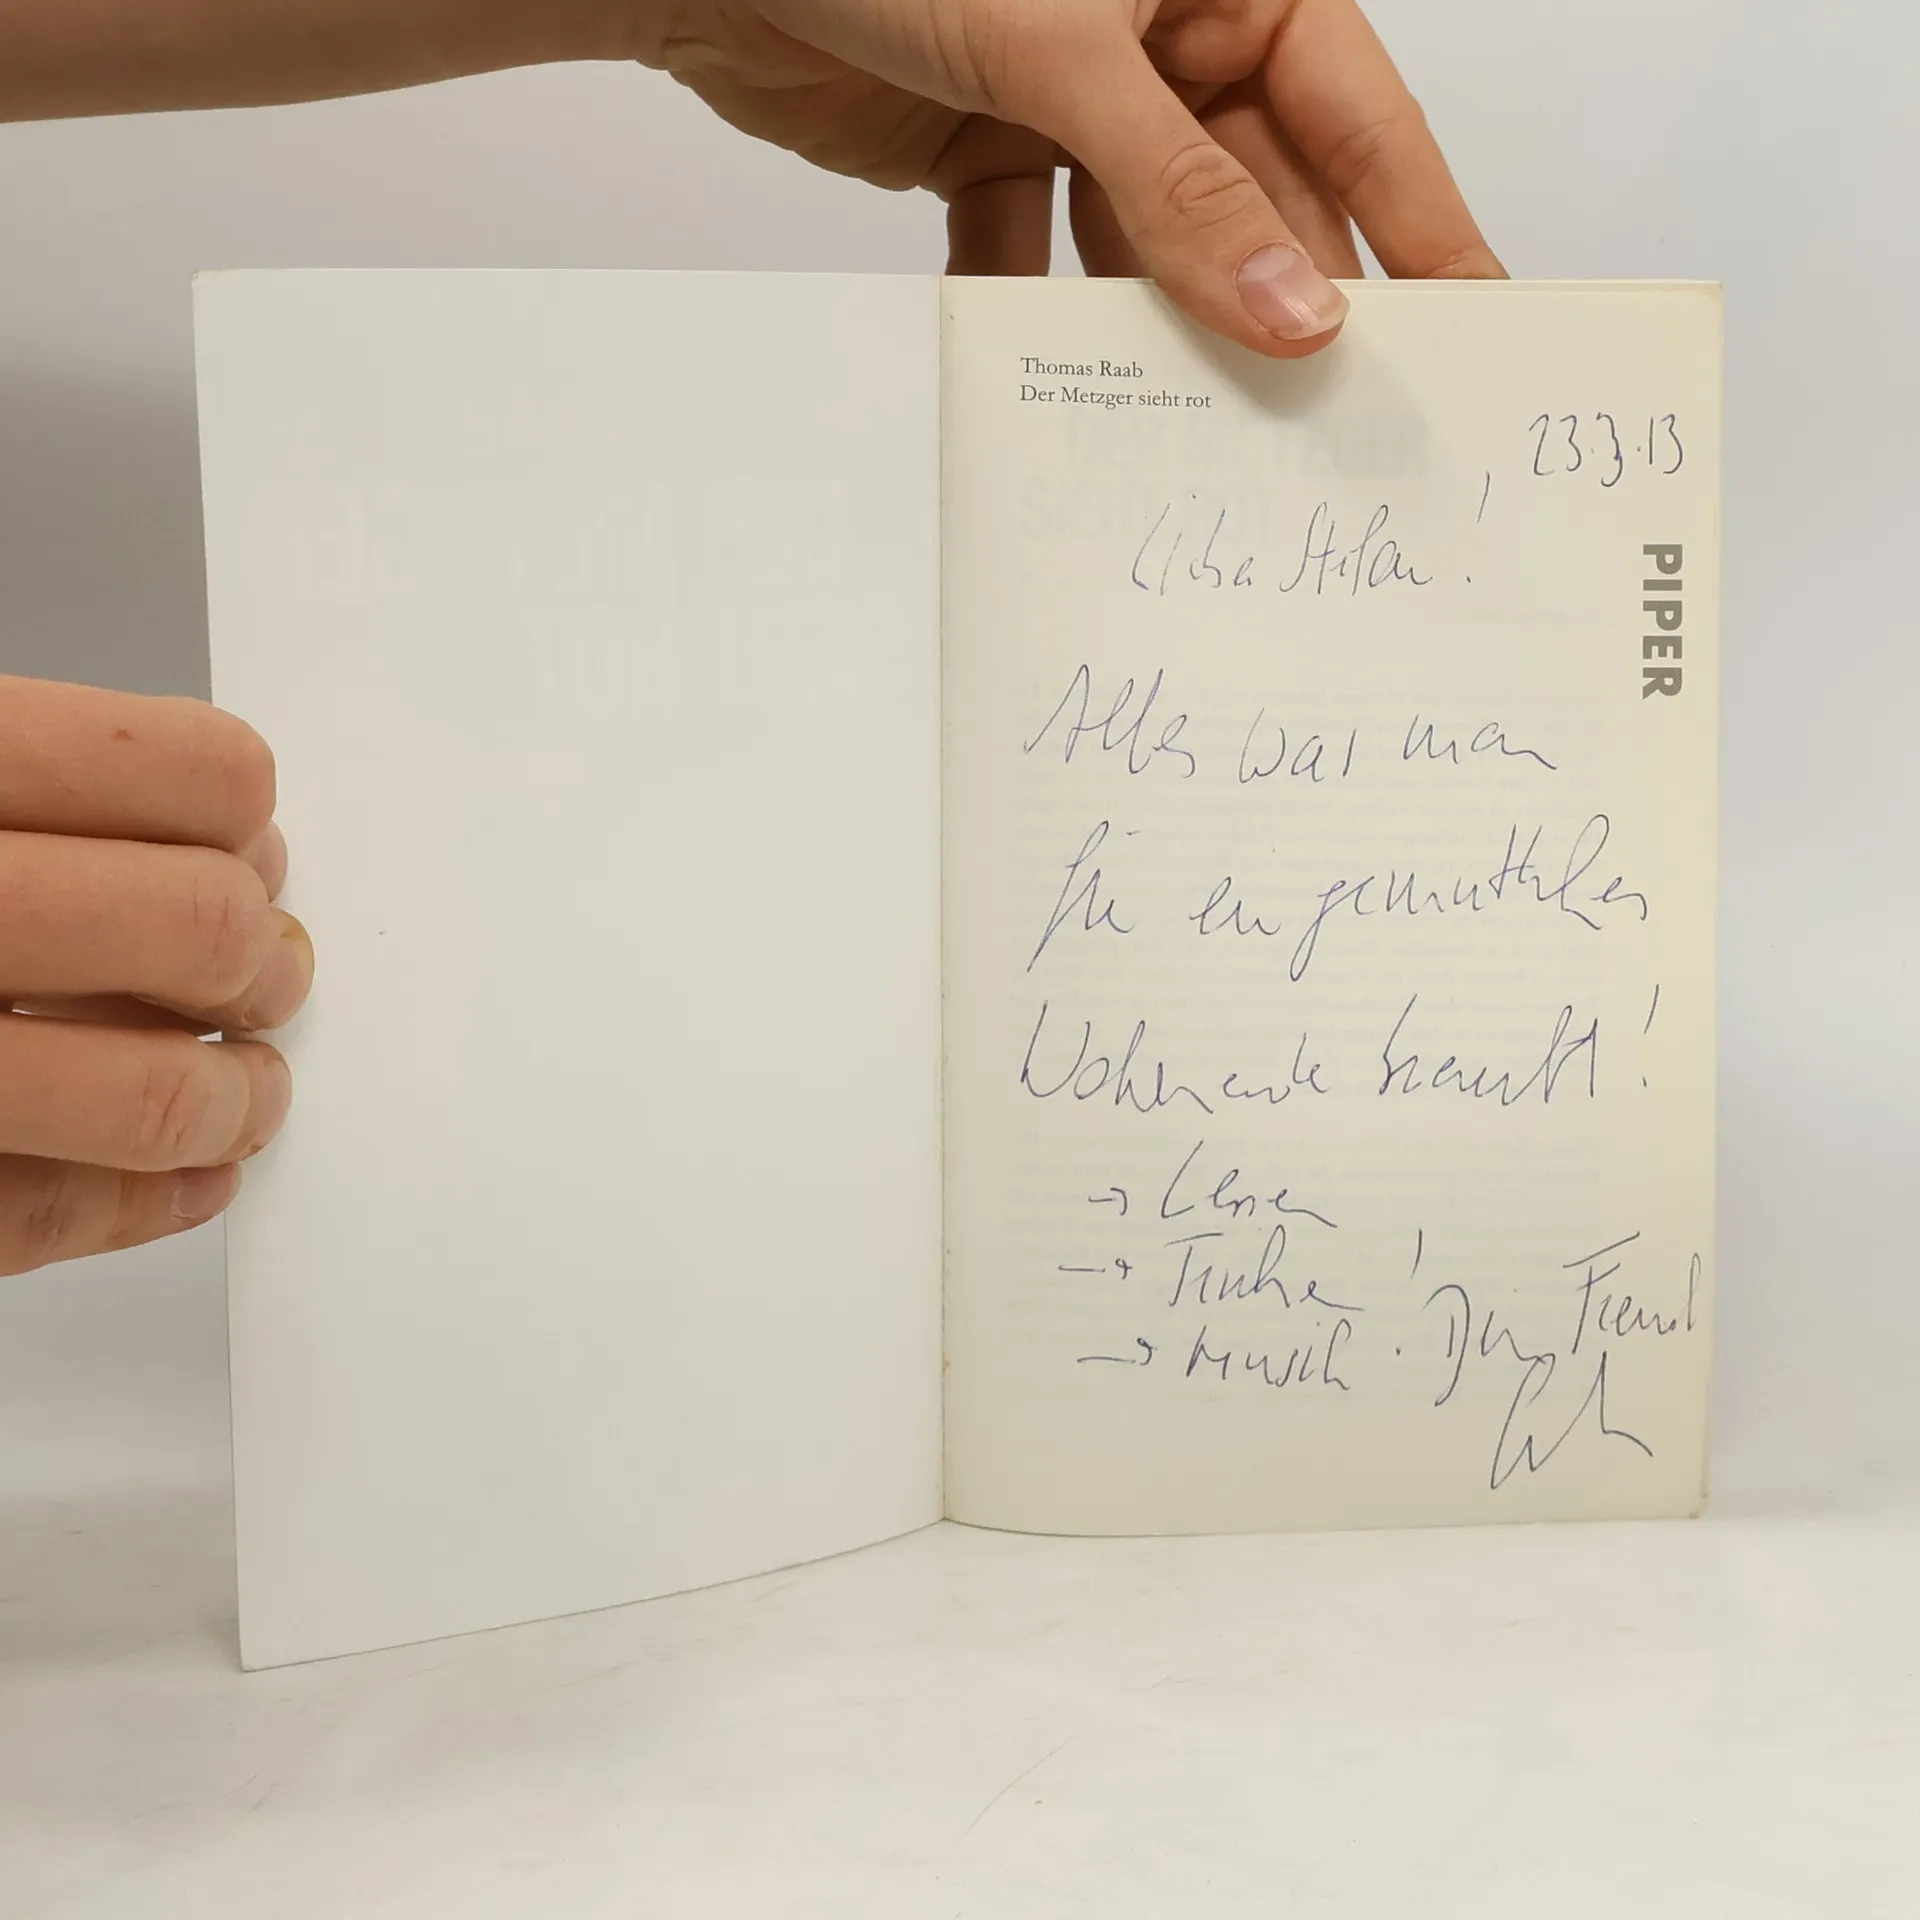 Thomas Raab
Der Metzger sieht rot
23.3.13
PIPER
Lieber Stefan!
Alles was man
für ein gemütliches
Wochenende braucht!
→ Lesen
→ Trinken
→ Musik! Dein Freund